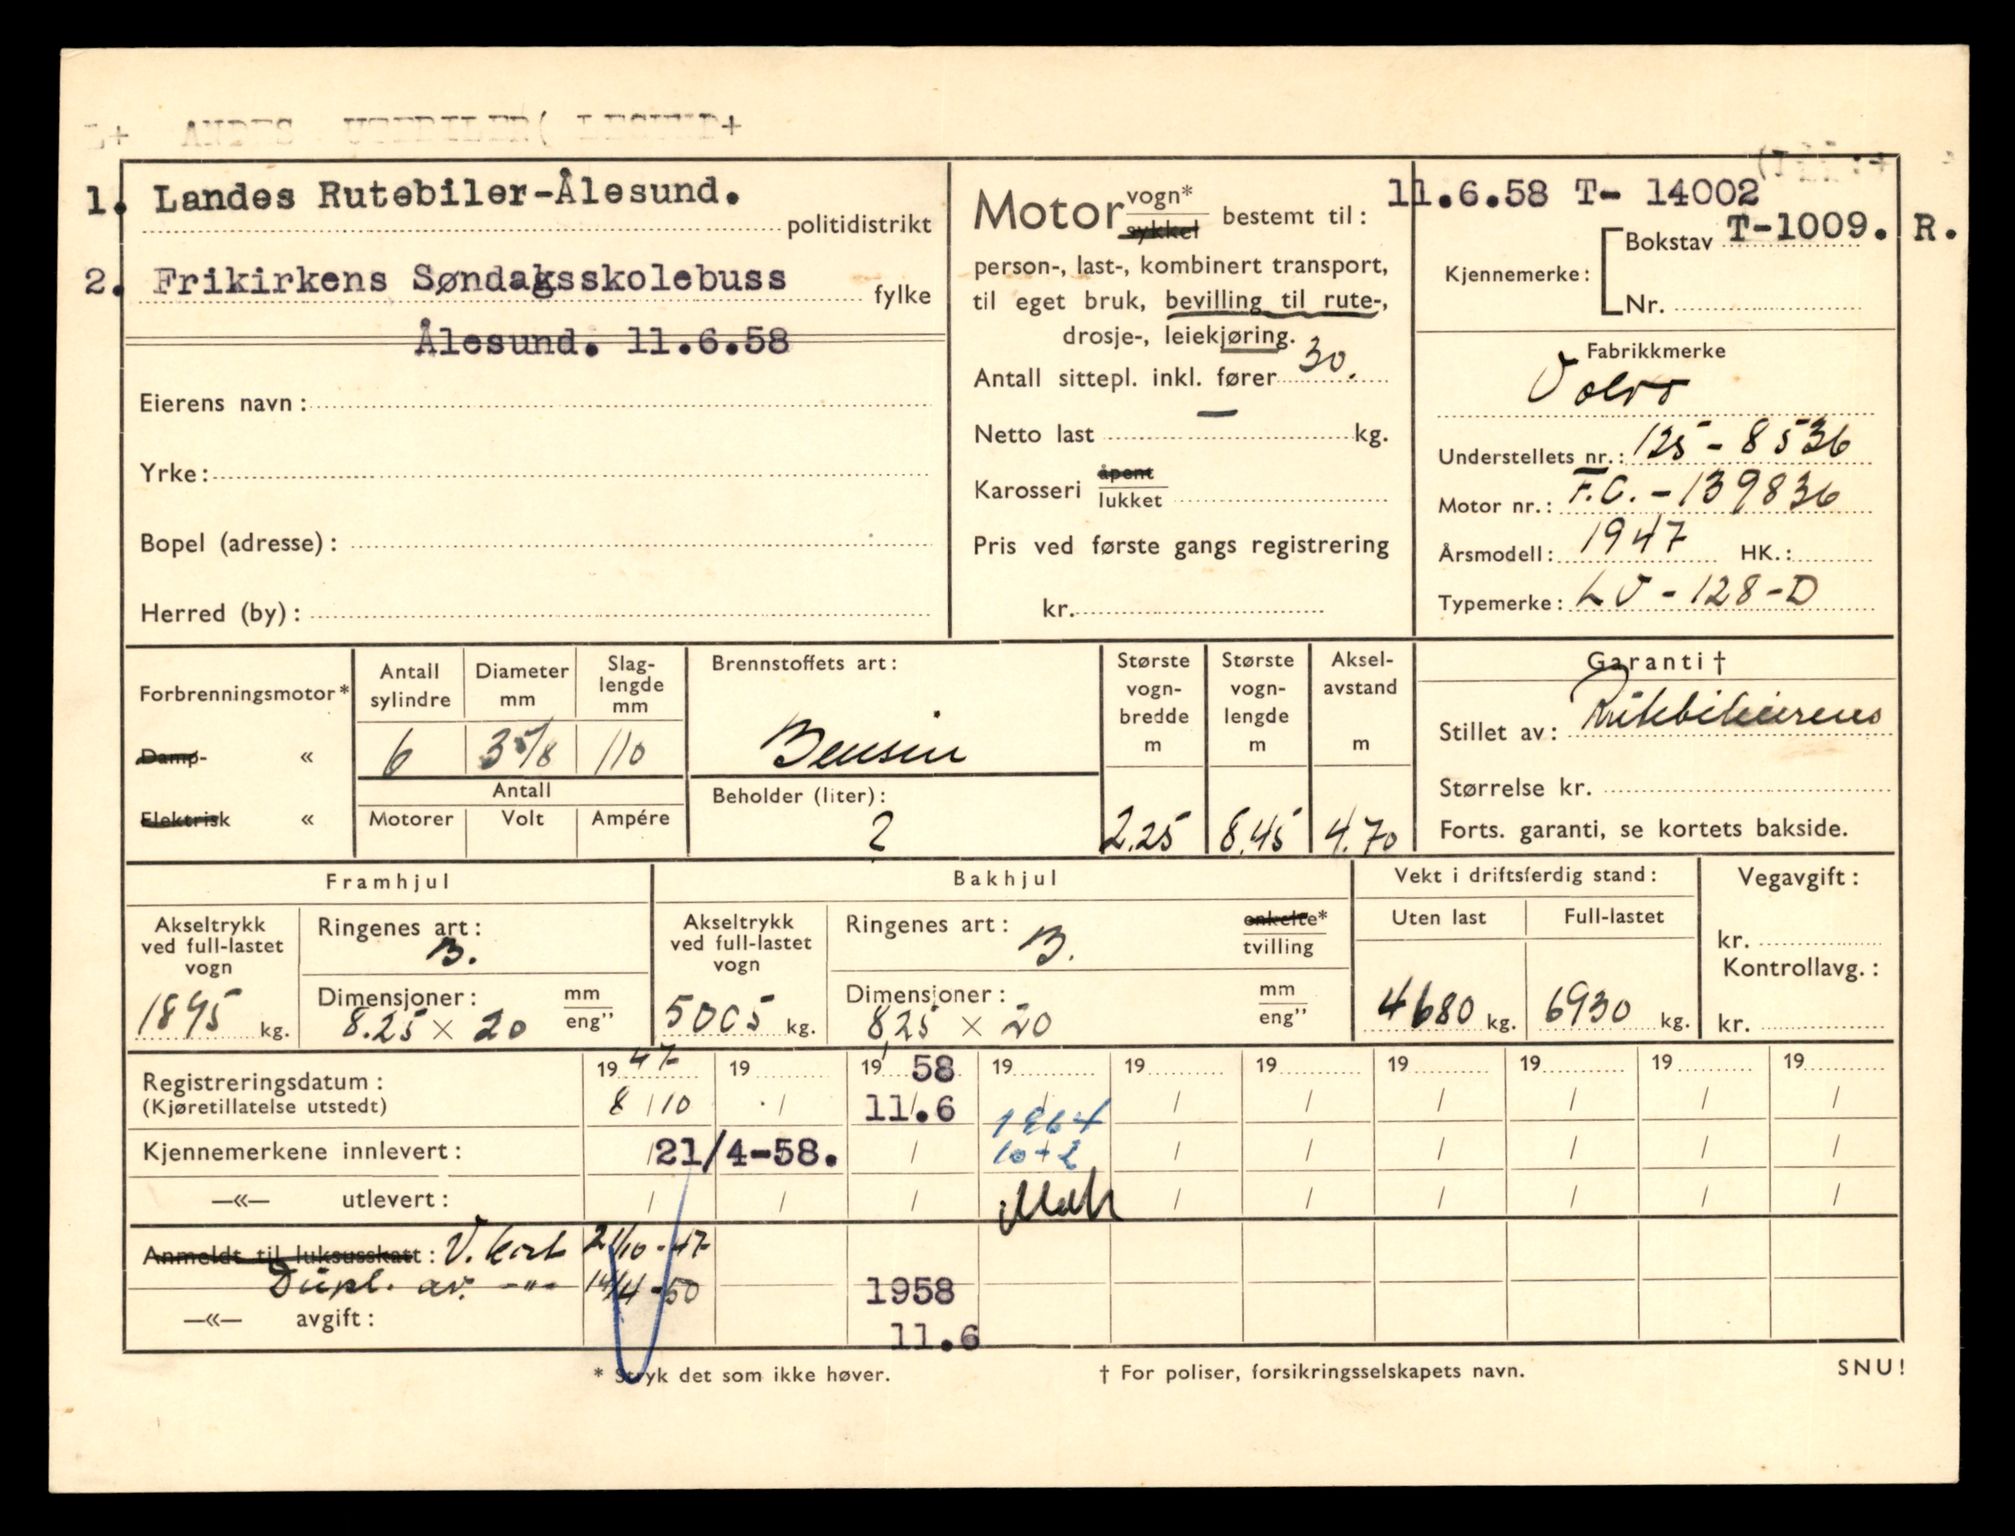 1. Landes Rutebiler-Ålesund.
politidistrikt
2. Frikirkens Søndagsskolebuss
fylke
Ålesund. 11.6.58
Eierens navn:
Yrke:
Bopel (adresse):
Herred (by):
Motor vogn* / sykkel bestemt til:
person-, last-, kombinert transport,
til eget bruk, bevilling til rute-,
drosje-, leiekjøring.
Antall sittepl. inkl. fører 30.
Netto last — kg.
Karosseri åpent / lukket
Pris ved første gangs registrering
kr.
11.6.58 T- 14002
Kjennemerke: Bokstav T-1009. R.
Nr.
Fabrikkmerke
Volvo
Understellets nr.: 125-8536
Motor nr.: F.C.-139836
Årsmodell: 1947 HK.:
Typemerke: LV-128-D
Forbrenningsmotor*
Damp- «
Elektrisk «
Antall sylindre
6
Diameter mm
3 5/8
Slag-lengde mm
110
Antall
Motorer Volt Ampére
Brennstoffets art:
Bensin
Beholder (liter):
?
Største vogn-bredde m
2.25
Største vogn-lengde m
8.45
Aksel-avstand m
4.70
Garanti †
Stillet av: Rutebileierenes
Størrelse kr.
Forts. garanti, se kortets bakside.
Framhjul
Akseltrykk ved full-lastet vogn
1895 kg.
Ringenes art:
B.
Dimensjoner: mm / eng"
8.25 × 20
Bakhjul
Akseltrykk ved full-lastet vogn
5005 kg.
Ringenes art: enkelte* / tvilling
B.
Dimensjoner: mm / eng"
8,25 × 20
Vekt i driftsferdig stand:
Uten last
4680 kg.
Full-lastet
6930 kg.
Vegavgift:
kr.
Kontrollavg.:
kr.
19 47 19 19 58 19 19 19 19 19 19 19
Registreringsdatum:
(Kjøretillatelse utstedt)
8/10 / 11.6 / / / / / / /
1964
Kjennemerkene innlevert: 21/4-58. / 10+2 / / / / / /
—«— utlevert: / / / / / / / / /
Anmeldt til luksusskatt: V. kort 21/10-47
Dupl. av. —"— 14/4-50
1958
—«— avgift:
11.6
* Stryk det som ikke høver.
† For poliser, forsikringsselskapets navn.
SNU!